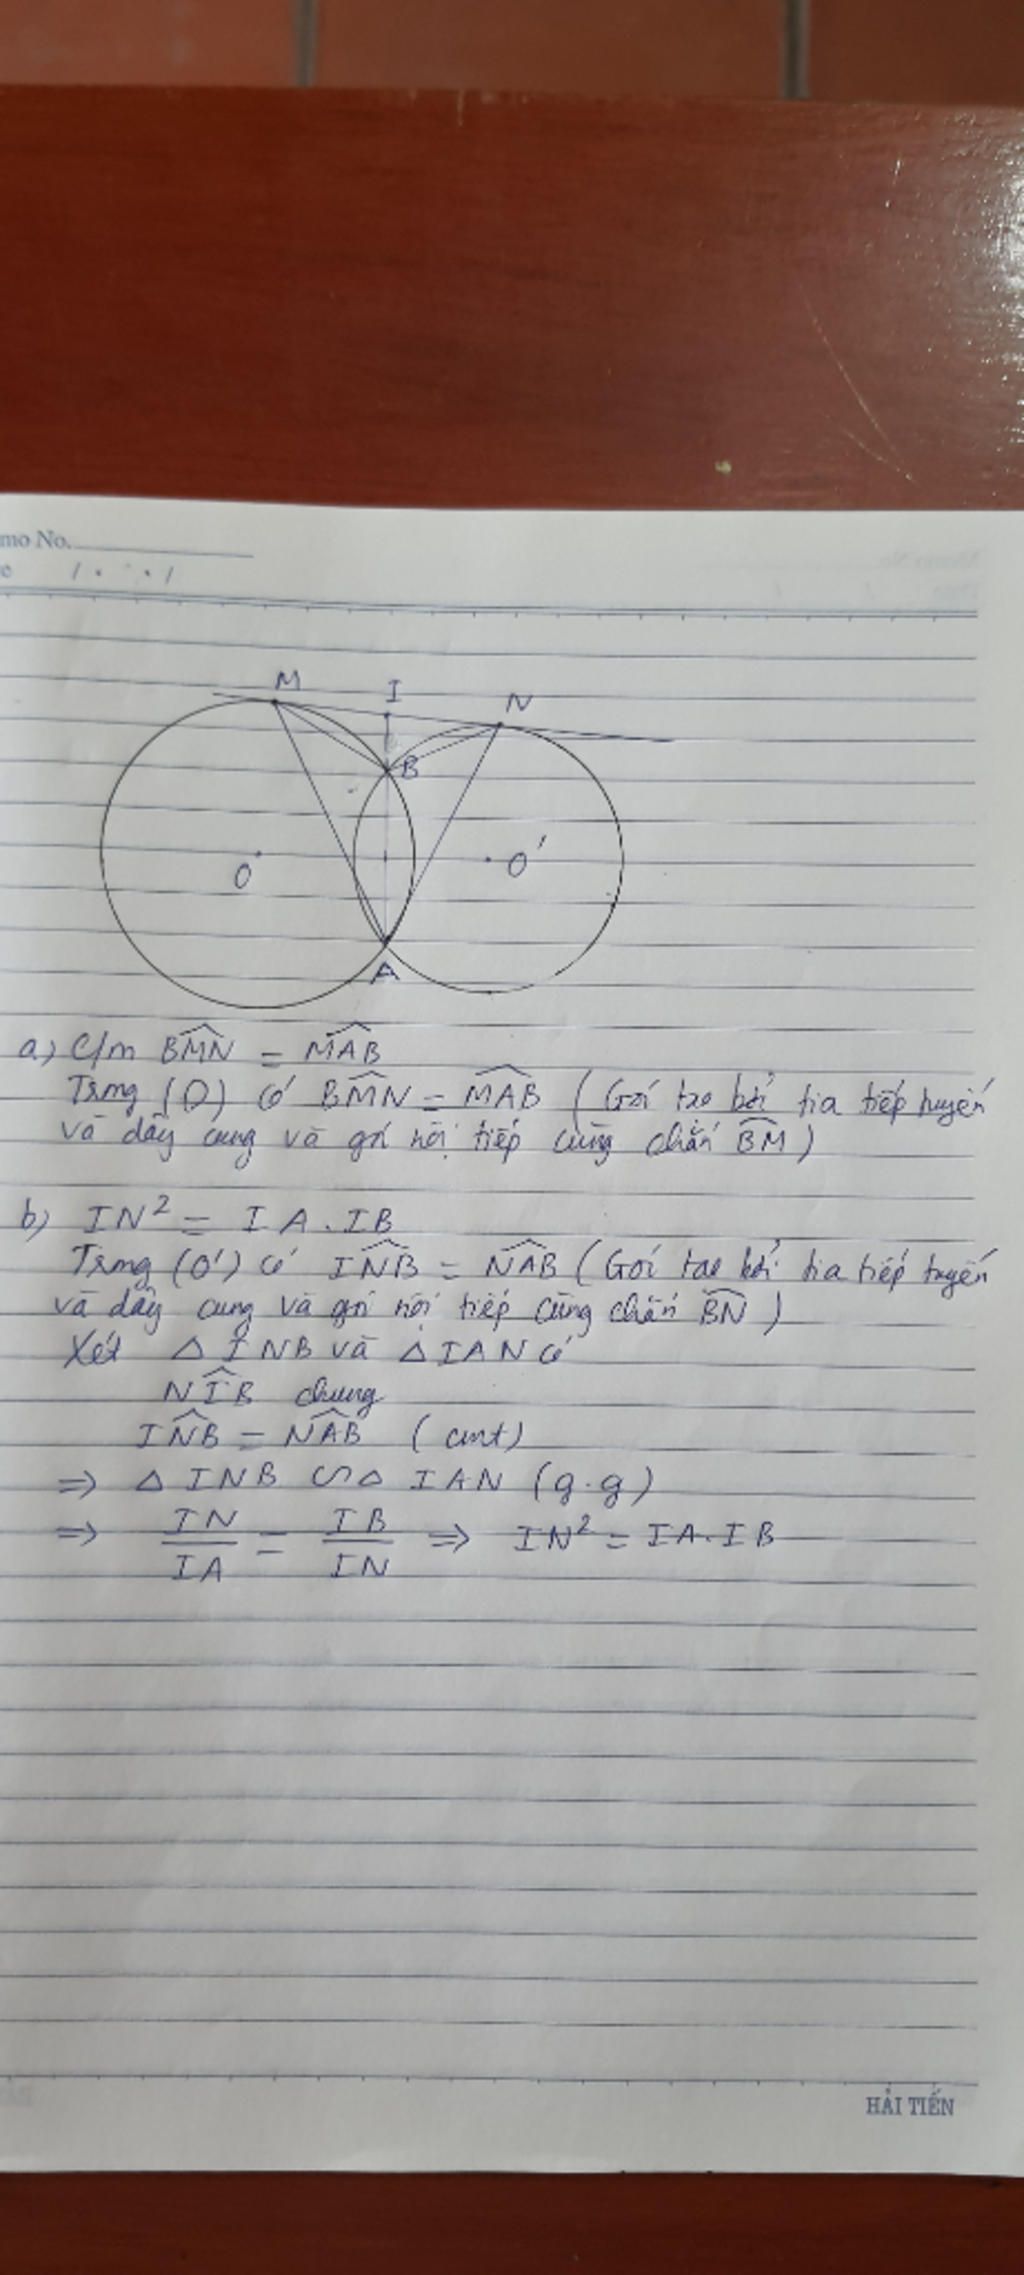 mo No.
e / . . /
M I N
B
O O'
A
a) C/m BM̂N = MÂB
Trong (O) có BM̂N = MÂB (Góc tạo bởi tia tiếp tuyến
và dây cung và góc nội tiếp cùng chắn BM)
b) IN² = IA.IB
Trong (O') có IN̂B = NÂB (Góc tạo bởi tia tiếp tuyến
và dây cung và góc nội tiếp cùng chắn BN)
Xét △INB và △IAN có
NÎB chung
IN̂B = NÂB (cmt)
=> △INB ∽ △IAN (g.g)
=> IN/IA = IB/IN => IN² = IA.IB
HẢI TIẾN